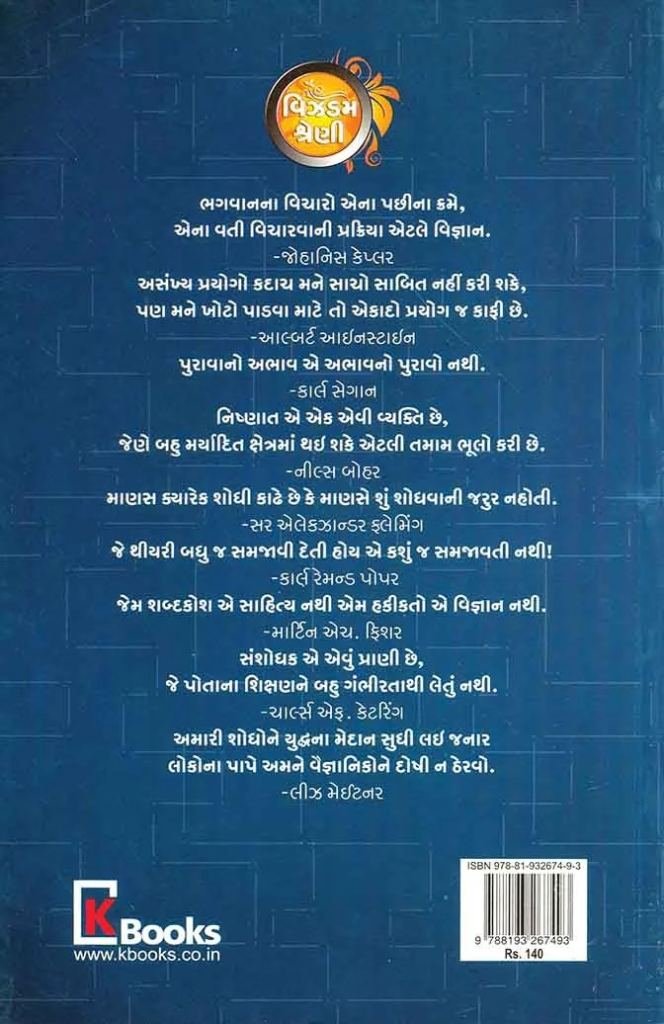 વિઝડમ
શ્રેણી
ભગવાનના વિચારો એના પછીના ક્રમે,
એના વતી વિચારવાની પ્રક્રિયા એટલે વિજ્ઞાન.
-જોહાનિસ કેપ્લર
અસંખ્ય પ્રયોગો કદાચ મને સાચો સાબિત નહીં કરી શકે,
પણ મને ખોટો પાડવા માટે તો એકાદો પ્રયોગ જ કાફી છે.
-આલ્બર્ટ આઈનસ્ટાઈન
પુરાવાનો અભાવ એ અભાવનો પુરાવો નથી.
-કાર્લ સેગાન
નિષ્ણાત એ એક એવી વ્યક્તિ છે,
જેણે બહુ મર્યાદિત ક્ષેત્રમાં થઇ શકે એટલી તમામ ભૂલો કરી છે.
-નીલ્સ બોહર
માણસ ક્યારેક શોધી કાઢે છે કે માણસે શું શોધવાની જરુર નહોતી.
-સર એલેકઝાન્ડર ફ્લેમિંગ
જે થીયરી બધુ જ સમજાવી દેતી હોય એ કશું જ સમજાવતી નથી!
-કાર્લ રેમન્ડ પોપર
જેમ શબ્દકોશ એ સાહિત્ય નથી એમ હકીકતો એ વિજ્ઞાન નથી.
-માર્ટિન એચ. ફિશર
સંશોધક એ એવું પ્રાણી છે,
જે પોતાના શિક્ષણને બહુ ગંભીરતાથી લેતું નથી.
-ચાર્લ્સ એફ. કેટરિંગ
અમારી શોધોને યુદ્ધના મેદાન સુધી લઇ જનાર
લોકોના પાપે અમને વૈજ્ઞાનિકોને દોષી ન ઠેરવો.
-લીઝ મેઈટનર
K Books
www.kbooks.co.in
ISBN 978-81-932674-9-3
9 788193 267493
Rs. 140